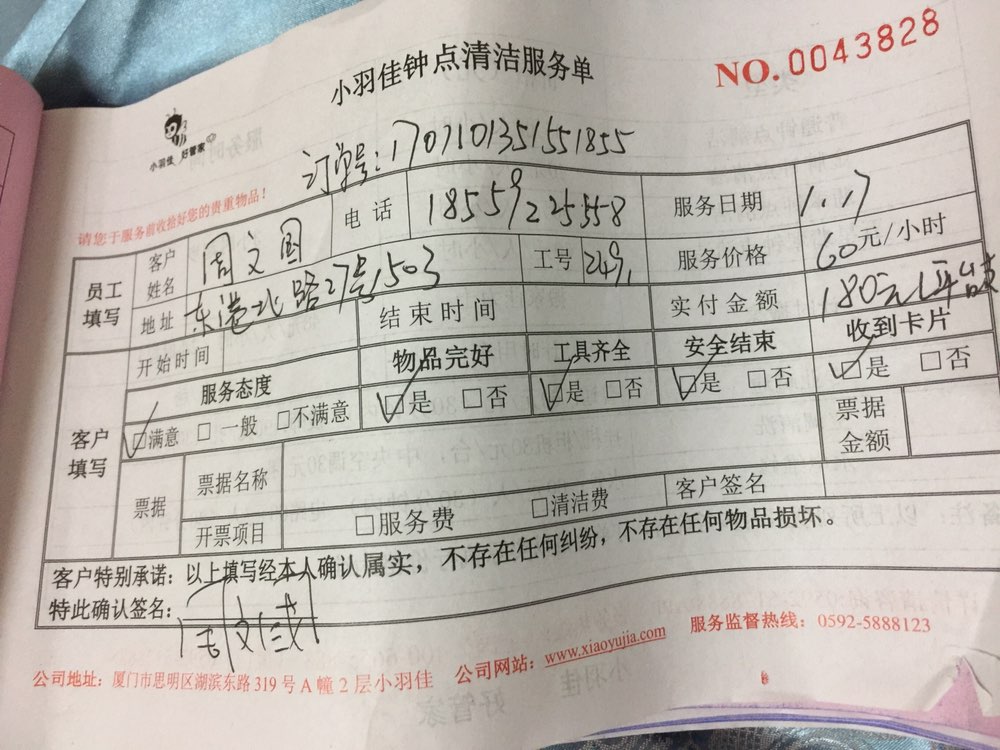 小羽佳钟点清洁服务单
NO. 0043828
小羽佳 好管家
订单号:170710135155 1855
请您于服务前收拾好您的贵重物品!
员工填写 客户姓名 周文国 电话 18559225558 服务日期 1.17
地址 东港北路27号1503 工号 2491 服务价格 60元/小时
开始时间 结束时间 实付金额 180元
客户填写 服务态度 物品完好 工具齐全 安全结束 收到卡片
☑满意 □一般 □不满意 ☑是 □否 ☑是 □否 ☑是 □否 ☑是 □否
票据 票据名称 票据金额
开票项目 □服务费 □清洁费 客户签名
客户特别承诺:以上填写经本人确认属实,不存在任何纠纷,不存在任何物品损坏。
特此确认签名:
公司地址:厦门市思明区湖滨东路319号A幢2层小羽佳 公司网站:www.xiaoyujia.com 服务监督热线:0592-5888123